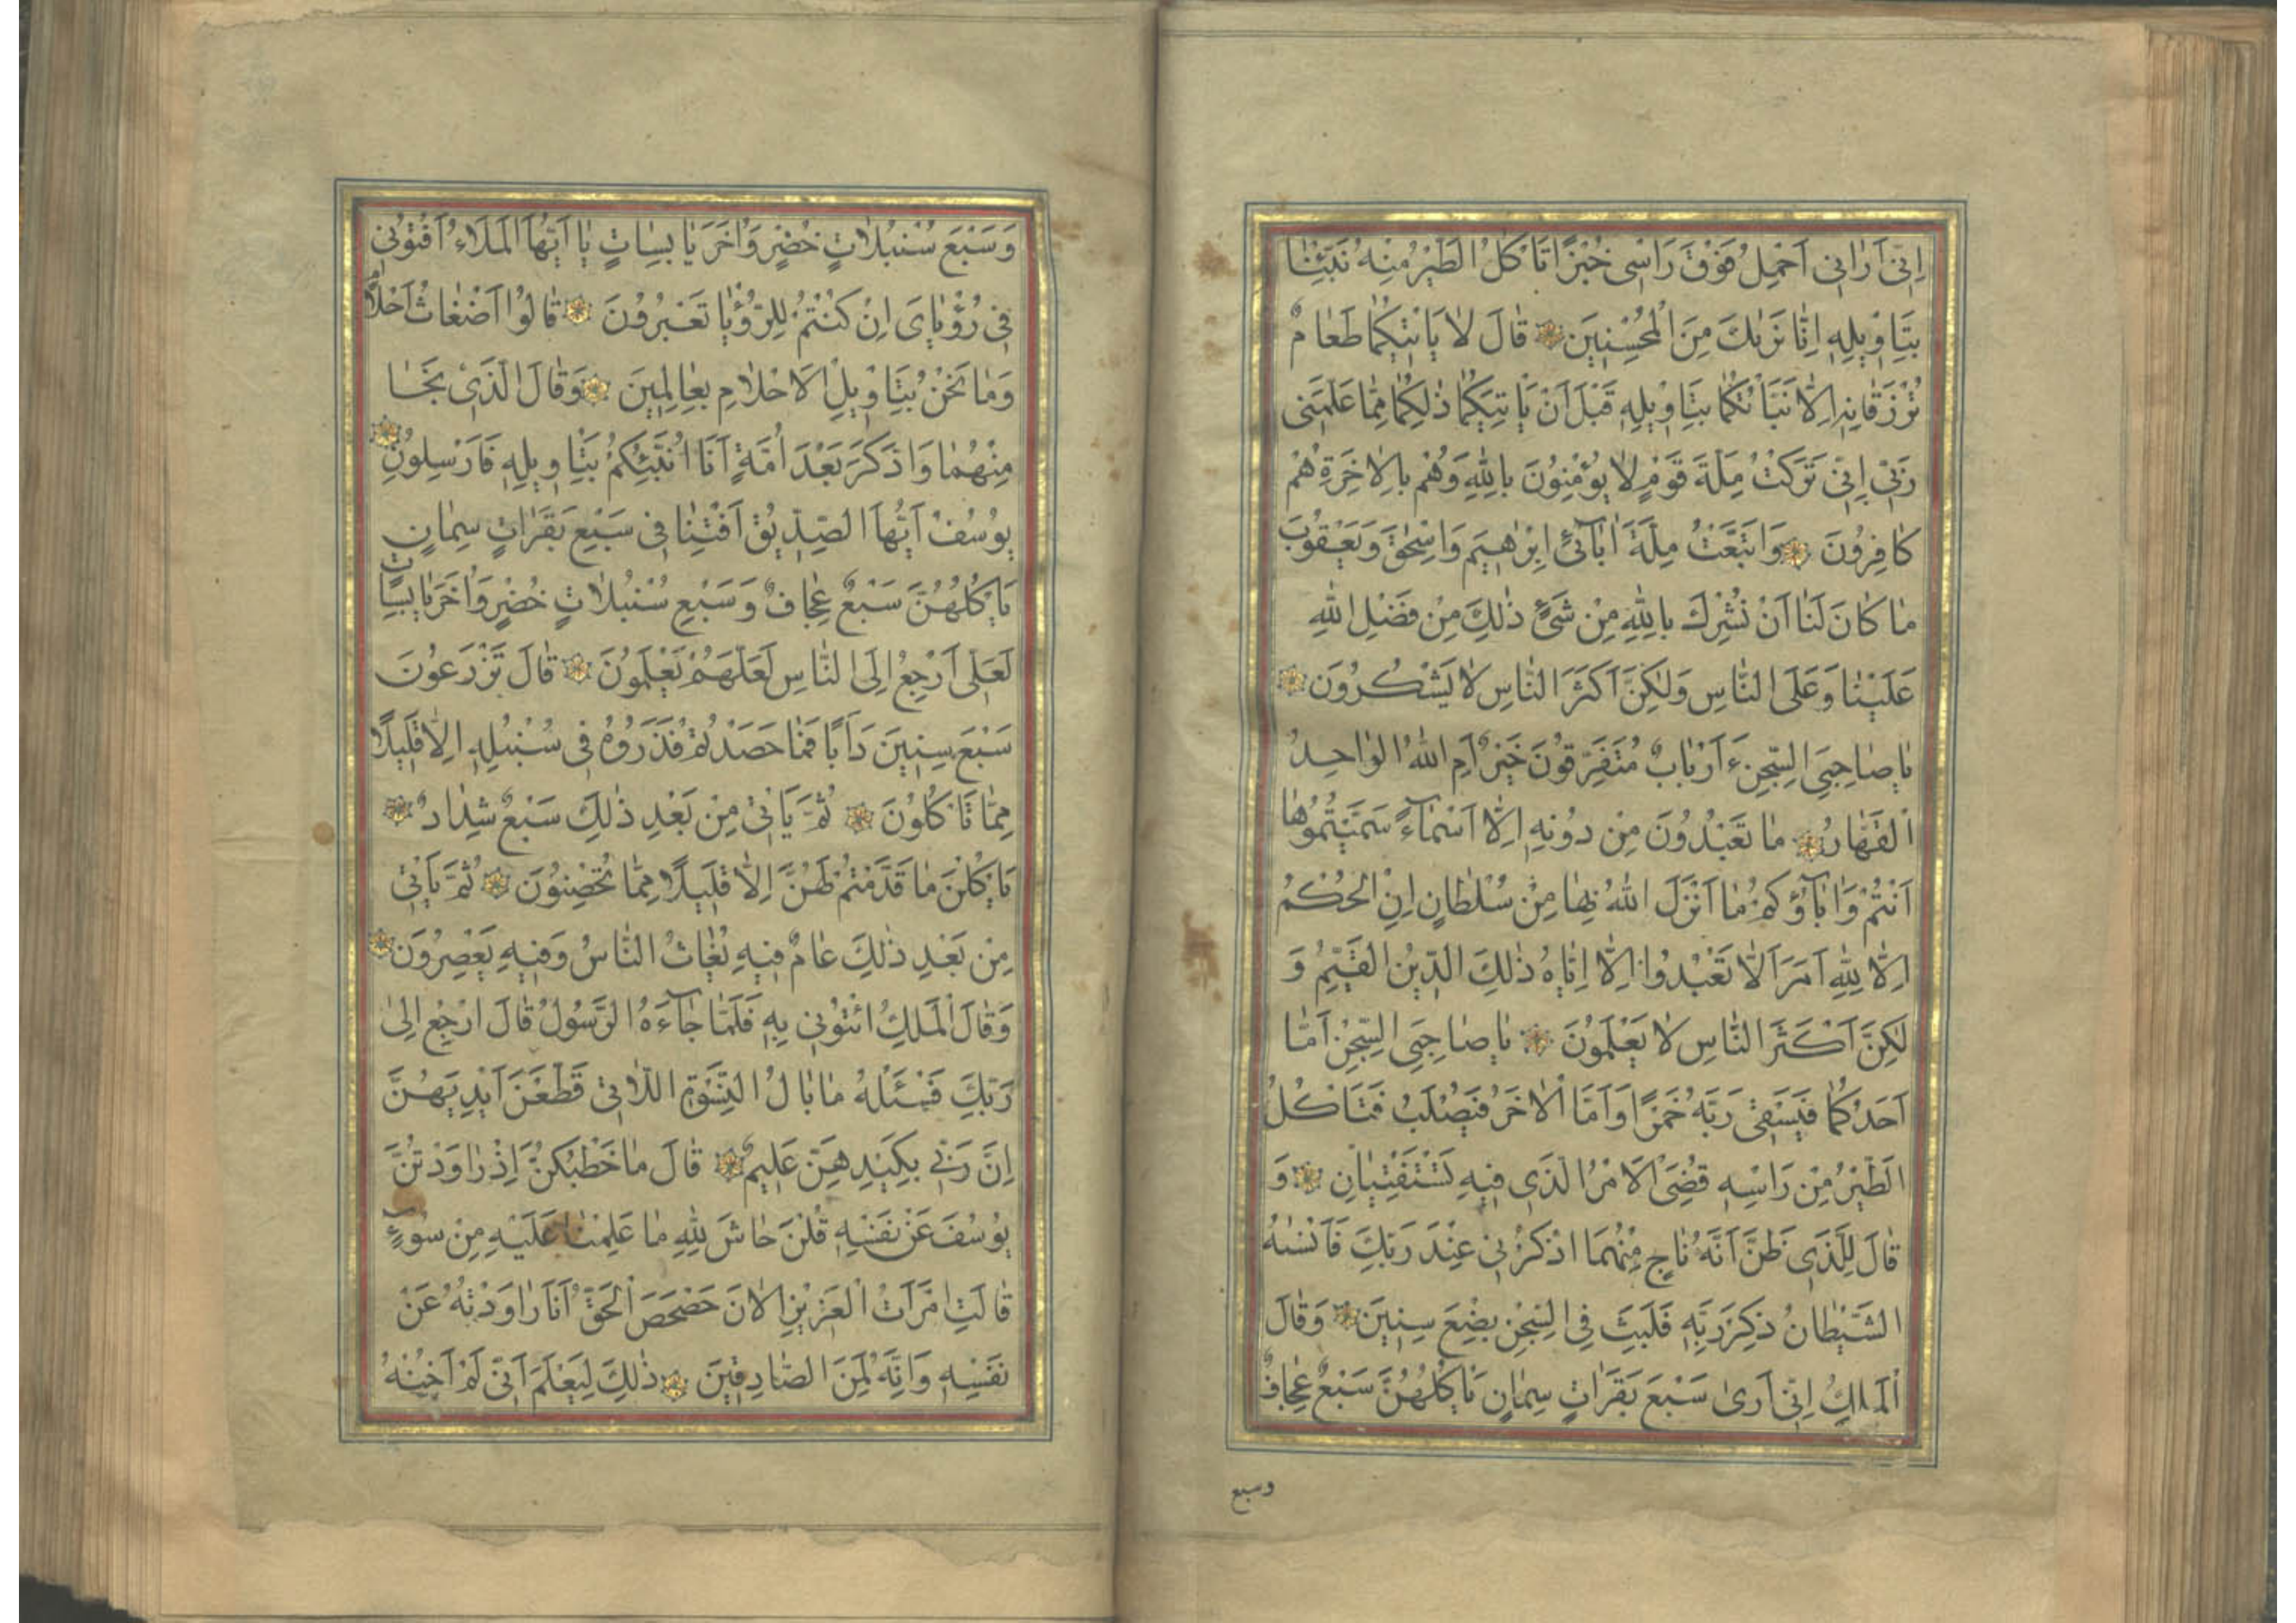 اِنّٖى اَرٰانٖى اَحْمِلُ فَوْقَ رَاْسٖى خُبْزًا تَاْكُلُ الطَّيْرُ مِنْهُ نَبِّئْنٰا
بِتَاْوٖيلِهٖ اِنّٰا نَرٰيكَ مِنَ الْمُحْسِنٖينَ قٰالَ لٰا يَاْتٖيكُمٰا طَعٰامٌ
تُرْزَقٰانِهٖ اِلّٰا نَبَّاْتُكُمٰا بِتَاْوٖيلِهٖ قَبْلَ اَنْ يَاْتِيَكُمٰا ذٰلِكُمٰا مِمّٰا عَلَّمَنٖى
رَبّٖى اِنّٖى تَرَكْتُ مِلَّةَ قَوْمٍ لٰا يُؤْمِنُونَ بِاللّٰهِ وَهُمْ بِالْاٰخِرَةِ هُمْ
كٰافِرُونَ وَاتَّبَعْتُ مِلَّةَ اٰبٰآئٖى اِبْرٰهٖيمَ وَاِسْحٰقَ وَيَعْقُوبَ
مٰا كٰانَ لَنٰا اَنْ نُشْرِكَ بِاللّٰهِ مِنْ شَىْءٍ ذٰلِكَ مِنْ فَضْلِ اللّٰهِ
عَلَيْنٰا وَعَلَى النّٰاسِ وَلٰكِنَّ اَكْثَرَ النّٰاسِ لٰا يَشْكُرُونَ
يٰا صٰاحِبَىِ السِّجْنِ ءَاَرْبٰابٌ مُتَفَرِّقُونَ خَيْرٌ اَمِ اللّٰهُ الْوٰاحِدُ
الْقَهّٰارُ مٰا تَعْبُدُونَ مِنْ دُونِهٖ اِلّٰا اَسْمٰآءً سَمَّيْتُمُوهٰا
اَنْتُمْ وَاٰبٰآؤُكُمْ مٰا اَنْزَلَ اللّٰهُ بِهٰا مِنْ سُلْطٰانٍ اِنِ الْحُكْمُ
اِلّٰا لِلّٰهِ اَمَرَ اَلّٰا تَعْبُدُوا اِلّٰا اِيّٰاهُ ذٰلِكَ الدّٖينُ الْقَيِّمُ وَ
لٰكِنَّ اَكْثَرَ النّٰاسِ لٰا يَعْلَمُونَ يٰا صٰاحِبَىِ السِّجْنِ اَمّٰا
اَحَدُكُمٰا فَيَسْقٖى رَبَّهُ خَمْرًا وَاَمَّا الْاٰخَرُ فَيُصْلَبُ فَتَاْكُلُ
الطَّيْرُ مِنْ رَاْسِهٖ قُضِىَ الْاَمْرُ الَّذٖى فٖيهِ تَسْتَفْتِيٰانِ وَ
قٰالَ لِلَّذٖى ظَنَّ اَنَّهُ نٰاجٍ مِنْهُمَا اذْكُرْنٖى عِنْدَ رَبِّكَ فَاَنْسٰىهُ
الشَّيْطٰانُ ذِكْرَ رَبِّهٖ فَلَبِثَ فِى السِّجْنِ بِضْعَ سِنٖينَ وَقٰالَ
الْمَلِكُ اِنّٖى اَرىٰ سَبْعَ بَقَرٰاتٍ سِمٰانٍ يَاْكُلُهُنَّ سَبْعٌ عِجٰافٌ
وسبع
وَسَبْعَ سُنْبُلٰاتٍ خُضْرٍ وَاُخَرَ يٰابِسٰاتٍ يٰا اَيُّهَا الْمَلَاءُ اَفْتُونٖى
فٖى رُؤْيٰاىَ اِنْ كُنْتُمْ لِلرُّؤْيٰا تَعْبُرُونَ قٰالُوا اَضْغٰاثُ اَحْلٰامٍ
وَمٰا نَحْنُ بِتَاْوٖيلِ الْاَحْلٰامِ بِعٰالِمٖينَ وَقٰالَ الَّذٖى نَجٰا
مِنْهُمٰا وَادَّكَرَ بَعْدَ اُمَّةٍ اَنَا اُنَبِّئُكُمْ بِتَاْوٖيلِهٖ فَاَرْسِلُونِ
يُوسُفُ اَيُّهَا الصِّدّٖيقُ اَفْتِنٰا فٖى سَبْعِ بَقَرٰاتٍ سِمٰانٍ
يَاْكُلُهُنَّ سَبْعٌ عِجٰافٌ وَسَبْعِ سُنْبُلٰاتٍ خُضْرٍ وَاُخَرَ يٰابِسٰاتٍ
لَعَلّٖى اَرْجِعُ اِلَى النّٰاسِ لَعَلَّهُمْ يَعْلَمُونَ قٰالَ تَزْرَعُونَ
سَبْعَ سِنٖينَ دَاَبًا فَمٰا حَصَدْتُمْ فَذَرُوهُ فٖى سُنْبُلِهٖ اِلّٰا قَلٖيلًا
مِمّٰا تَاْكُلُونَ ثُمَّ يَاْتٖى مِنْ بَعْدِ ذٰلِكَ سَبْعٌ شِدٰادٌ
يَاْكُلْنَ مٰا قَدَّمْتُمْ لَهُنَّ اِلّٰا قَلٖيلًا مِمّٰا تُحْصِنُونَ ثُمَّ يَاْتٖى
مِنْ بَعْدِ ذٰلِكَ عٰامٌ فٖيهِ يُغٰاثُ النّٰاسُ وَفٖيهِ يَعْصِرُونَ
وَقٰالَ الْمَلِكُ ائْتُونٖى بِهٖ فَلَمّٰا جٰآءَهُ الرَّسُولُ قٰالَ ارْجِعْ اِلىٰ
رَبِّكَ فَسْئَلْهُ مٰا بٰالُ النِّسْوَةِ اللّٰاتٖى قَطَّعْنَ اَيْدِيَهُنَّ
اِنَّ رَبّٖى بِكَيْدِهِنَّ عَلٖيمٌ قٰالَ مٰا خَطْبُكُنَّ اِذْ رٰاوَدْتُنَّ
يُوسُفَ عَنْ نَفْسِهٖ قُلْنَ حٰاشَ لِلّٰهِ مٰا عَلِمْنٰا عَلَيْهِ مِنْ سُوءٍ
قٰالَتِ امْرَاَتُ الْعَزٖيزِ الْاٰنَ حَصْحَصَ الْحَقُّ اَنَا رٰاوَدْتُهُ عَنْ
نَفْسِهٖ وَاِنَّهُ لَمِنَ الصّٰادِقٖينَ ذٰلِكَ لِيَعْلَمَ اَنّٖى لَمْ اَخُنْهُ